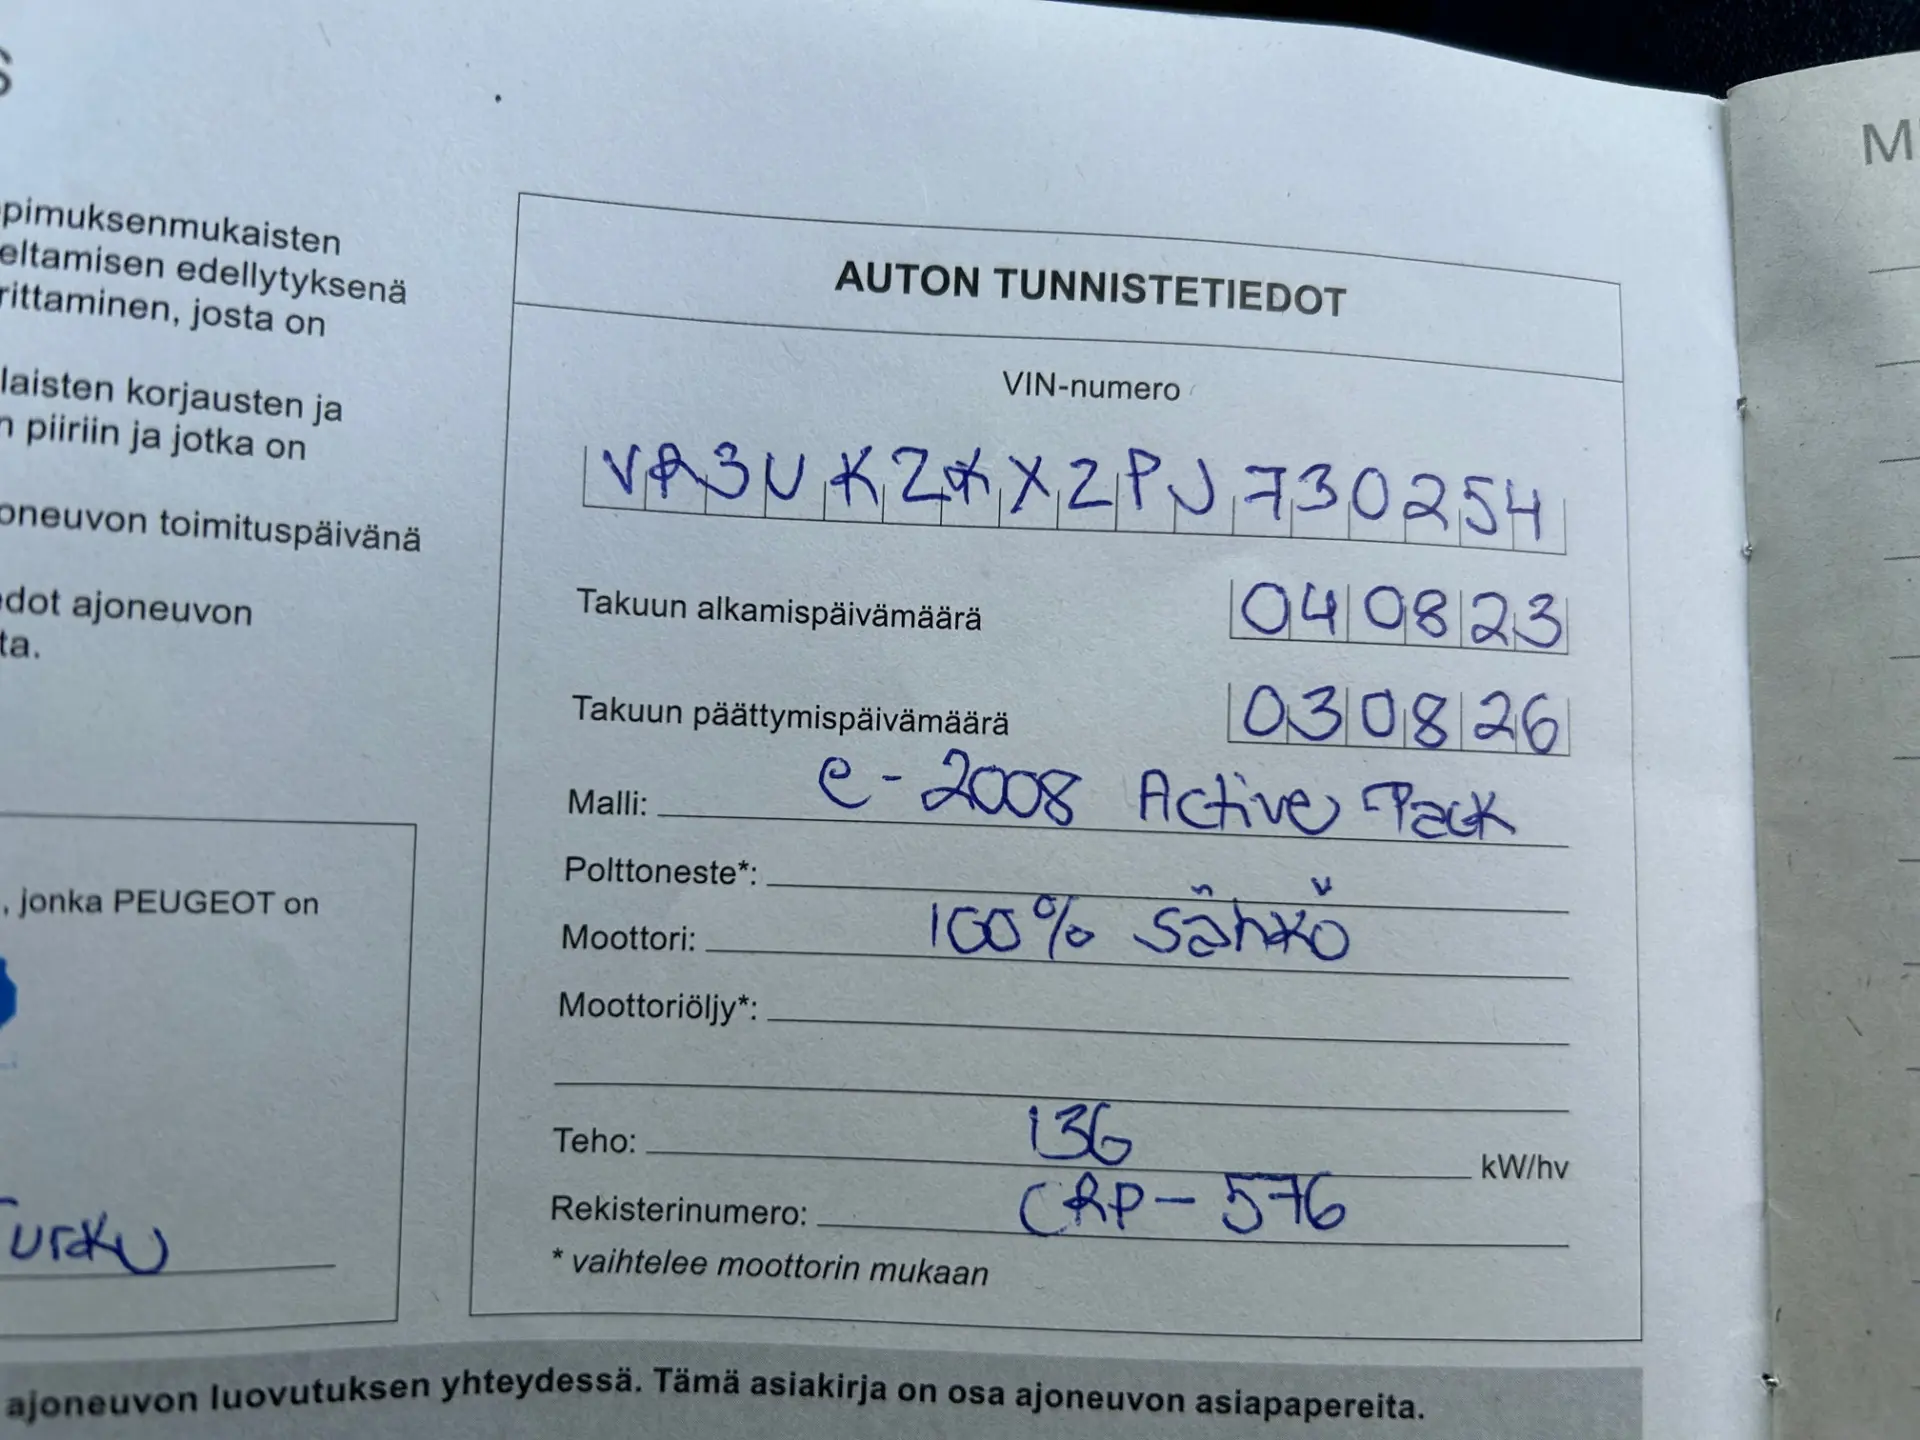 S
pimuksenmukaisten
eltamisen edellytyksenä
rittaminen, josta on
laisten korjausten ja
n piiriin ja jotka on
oneuvon toimituspäivänä
dot ajoneuvon
ta.
, jonka PEUGEOT on
Turku
AUTON TUNNISTETIEDOT
VIN-numero
VR3UKZKXZPJ730254
Takuun alkamispäivämäärä 040823
Takuun päättymispäivämäärä 030826
Malli: e-2008 Active Pack
Polttoneste*:
Moottori: 100% Sähkö
Moottoriöljy*:
Teho: 136 kW/hv
Rekisterinumero: CRP-576
* vaihtelee moottorin mukaan
ajoneuvon luovutuksen yhteydessä. Tämä asiakirja on osa ajoneuvon asiapapereita.
M